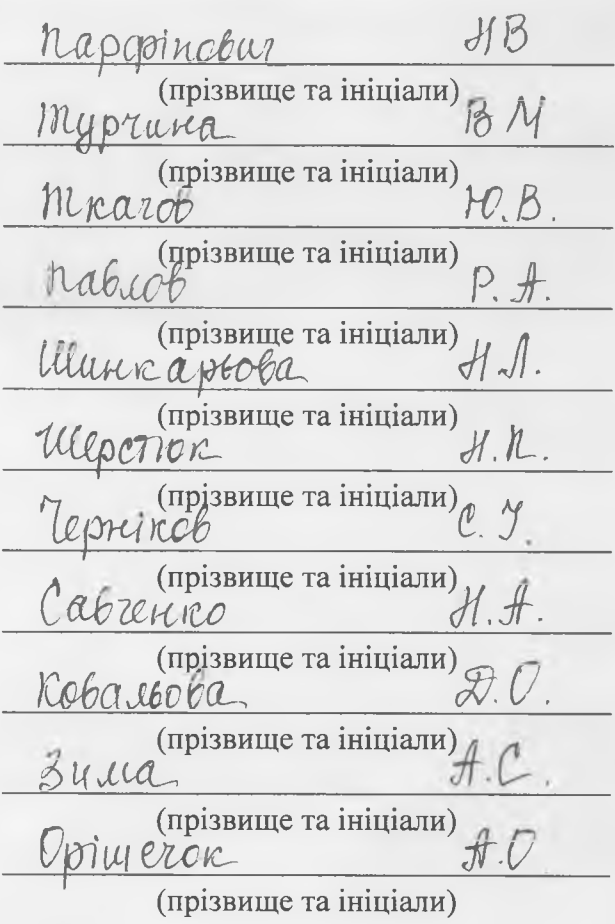 Парфінович НВ
(прізвище та ініціали)
Турчина ВМ
(прізвище та ініціали)
Ткачов Ю.В.
(прізвище та ініціали)
Павлов Р.А.
(прізвище та ініціали)
Шинкарьова Н.Л.
(прізвище та ініціали)
Шерстюк Н.П.
(прізвище та ініціали)
Черніков С.У.
(прізвище та ініціали)
Савченко Н.А.
(прізвище та ініціали)
Ковальова Д.О.
(прізвище та ініціали)
Зима А.С.
(прізвище та ініціали)
Орішечок А.О
(прізвище та ініціали)